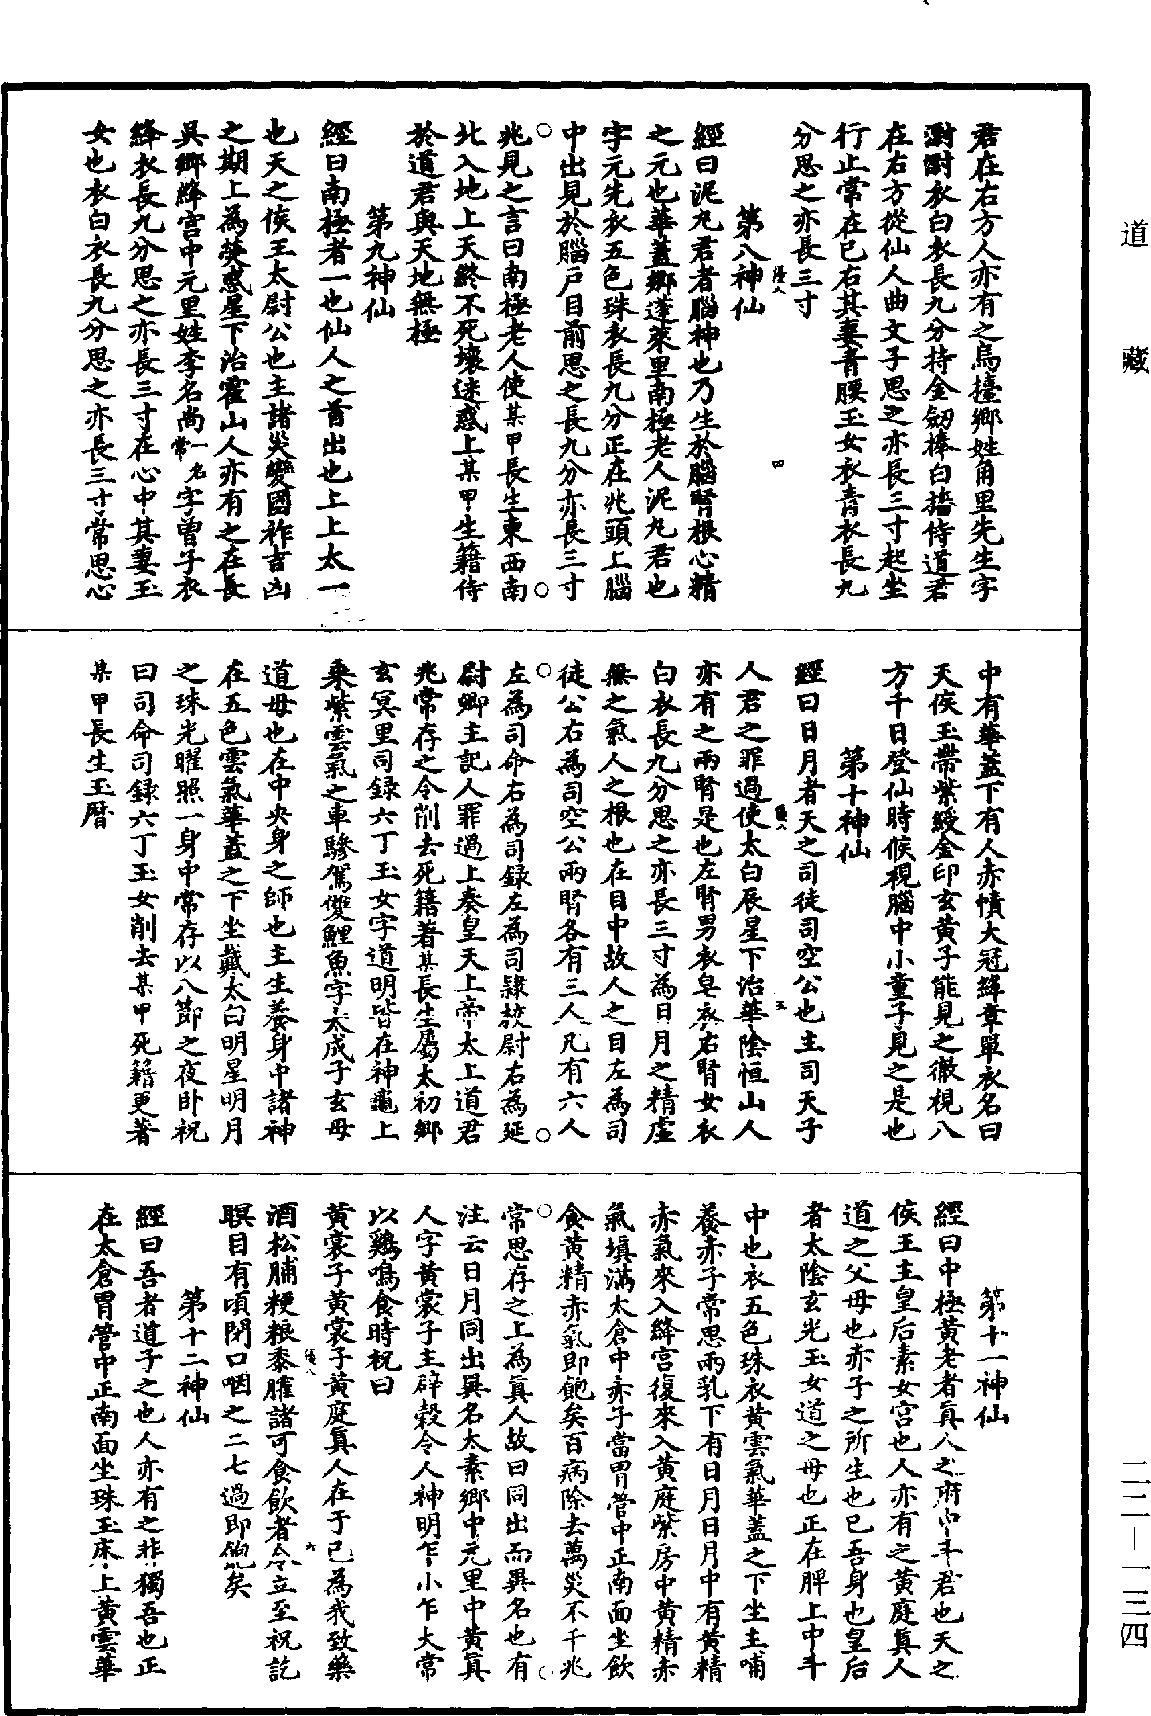 道藏
君在右方人亦有之烏擡鄉姓角里先生字
灂灂衣白衣長九分持金劒捧白旛侍道君
在右方從仙人曲文子思之亦長三寸起坐
行止常在己右其妻青腰玉女衣青衣長九
分思之亦長三寸
第八神仙
四
經曰泥丸君者腦神也乃生於腦腎根心精
之元也華蓋鄉蓬萊里南極老人泥丸君也
字元先衣五色珠衣長九分正在兆頭上腦
中出見於腦戶目前思之長九分亦長三寸
兆見之言曰南極老人使某甲長生東西南
北入地上天終不死壞迷惑上某甲生籍侍
於道君與天地無極
第九神仙
經曰南極者一也仙人之首出也上上太一
也天之侯王太尉公也主諸災變國祚吉凶
之期上為熒惑星下治霍山人亦有之在長
吳鄉絳宮中元里姓李名尚一名常字曾子衣
絳衣長九分思之亦長三寸在心中其妻玉
女也衣白衣長九分思之亦長三寸常思心
中有華蓋下有人赤幘大冠絳章單衣名曰
天侯玉帶紫綬金印玄黃子能見之徹視八
方千日登仙時候視腦中小童子見之是也
第十神仙
經曰日月者天之司徒司空公也主司天子
人君之罪過使太白辰星下治華陰恒山人
五
亦有之兩腎是也左腎男衣皂衣右腎女衣
白衣長九分思之亦長三寸為日月之精虛
無之氣人之根也在目中故人之目左為司
徒公右為司空公兩腎各有三人凡有六人
左為司命右為司錄左為司隸校尉右為延
尉卿主記人罪過上奏皇天上帝太上道君
兆常存之令削去死籍著某長生屬太初鄉
玄冥里司錄六丁玉女字道明皆在神龜上
乘紫雲氣之車驂駕雙鯉魚字太成子玄母
道母也在中央身之師也主生養身中諸神
在五色雲氣華蓋之下坐戴太白明星明月
之珠光曜照一身中常存以八節之夜臥祝
曰司命司錄六丁玉女削去某甲死籍更著
某甲長生玉曆
第十一神仙
經曰中極黃老者真人之府中斗君也天之
侯王主皇后素女宮也人亦有之黃庭真人
道之父母也赤子之所生也己吾身也皇后
者太陰玄光玉女道之母也正在脾上中斗
中也衣五色珠衣黃雲氣華蓋之下坐主哺
養赤子常思兩乳下有日月日月中有黃精
赤氣來入絳宮復來入黃庭紫房中黃精赤
氣填滿太倉中赤子當胃管中正南面坐飲
食黃精赤氣即飽矣百病除去萬災不干兆
常思存之上為真人故曰同出而異名也有
注云日月同出異名太素鄉中元里中黃真
人字黃裳子主辟穀令人神明乍小乍大常
以鷄鳴食時祝曰
黃裳子黃裳子黃庭真人在于己為我致藥
酒松脯粳粮黍臛諸可食飲者令立至祝訖
六
瞑目有頃閉口咽之二七過即飽矣
第十二神仙
經曰吾者道子之也人亦有之非獨吾也正
在太倉胃管中正南面坐珠玉床上黃雲華
二二—一三四